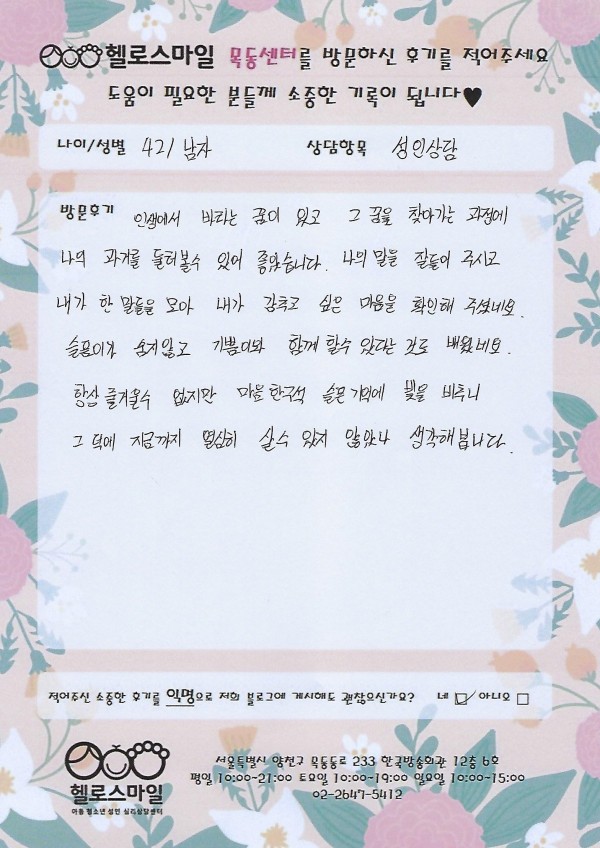 헬로스마일 목동센터를 방문하신 후기를 적어주세요
도움이 필요한 분들께 소중한 기록이 됩니다♥
나이/성별 42/ 남자 상담항목 성인상담
방문후기 인생에서 바라는 꿈이 있고 그 꿈을 찾아가는 과정에
나의 과거를 둘러볼수 있어 좋았습니다. 나의 말을 잘들어 주시고
내가 한 말들을 모아 내가 감추고 싶은 마음을 확인해 주셨네요.
슬픔이가 숨지않고 기쁨이와 함께 할수 있다는 것도 배웠네요.
항상 즐거울수 없지만 마음 한구석 슬픈 기억에 빛을 비추니
그 덕에 지금까지 열심히 살수 있지 않았나 생각해봅니다.
적어주신 소중한 후기를 익명으로 저희 블로그에 게시해도 괜찮으신가요? 네 ☑/ 아니오 □
서울특별시 양천구 목동동로 233 한국방송회관 12층 6호
평일 10:00~21:00 토요일 10:00~19:00 일요일 10:00~15:00
02-2647-5412
헬로스마일
아동 청소년 성인 심리상담센터